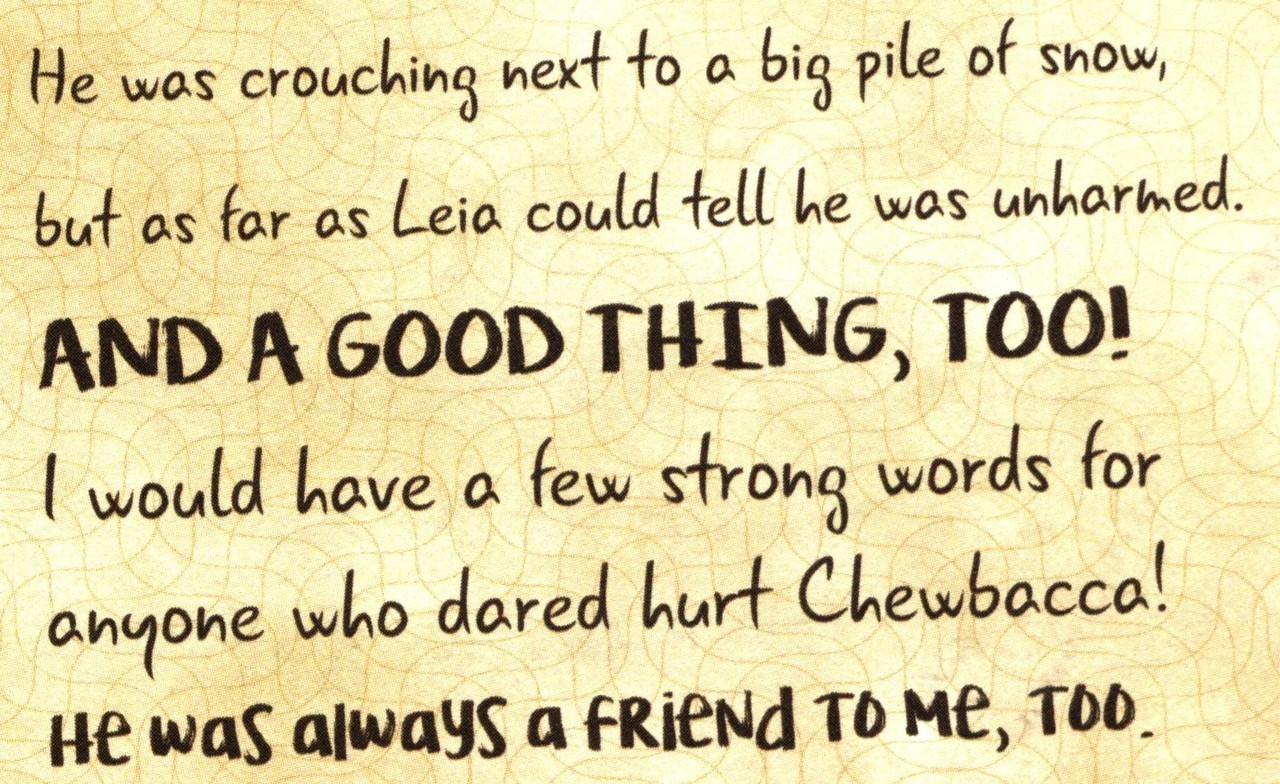 He was crouching next to a big pile of snow,
but as far as Leia could tell he was unharmed.
AND A GOOD THING, TOO!
I would have a few strong words for
anyone who dared hurt Chewbacca!
He was always a FRieNd To Me, Too.